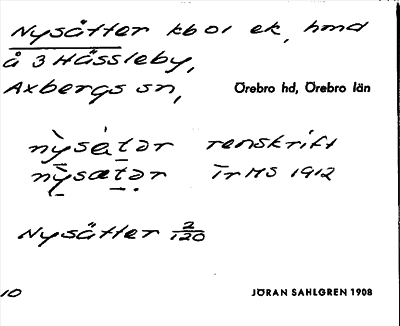 Nysätter kbol ek, hmd
å 3 Hässleby,
Axbergs sn, Örebro hd, Örebro län
nỳsètər renskrift
nỳsætər TrMS 1912
Nysätter 2/120
10 JÖRAN SAHLGREN 1908